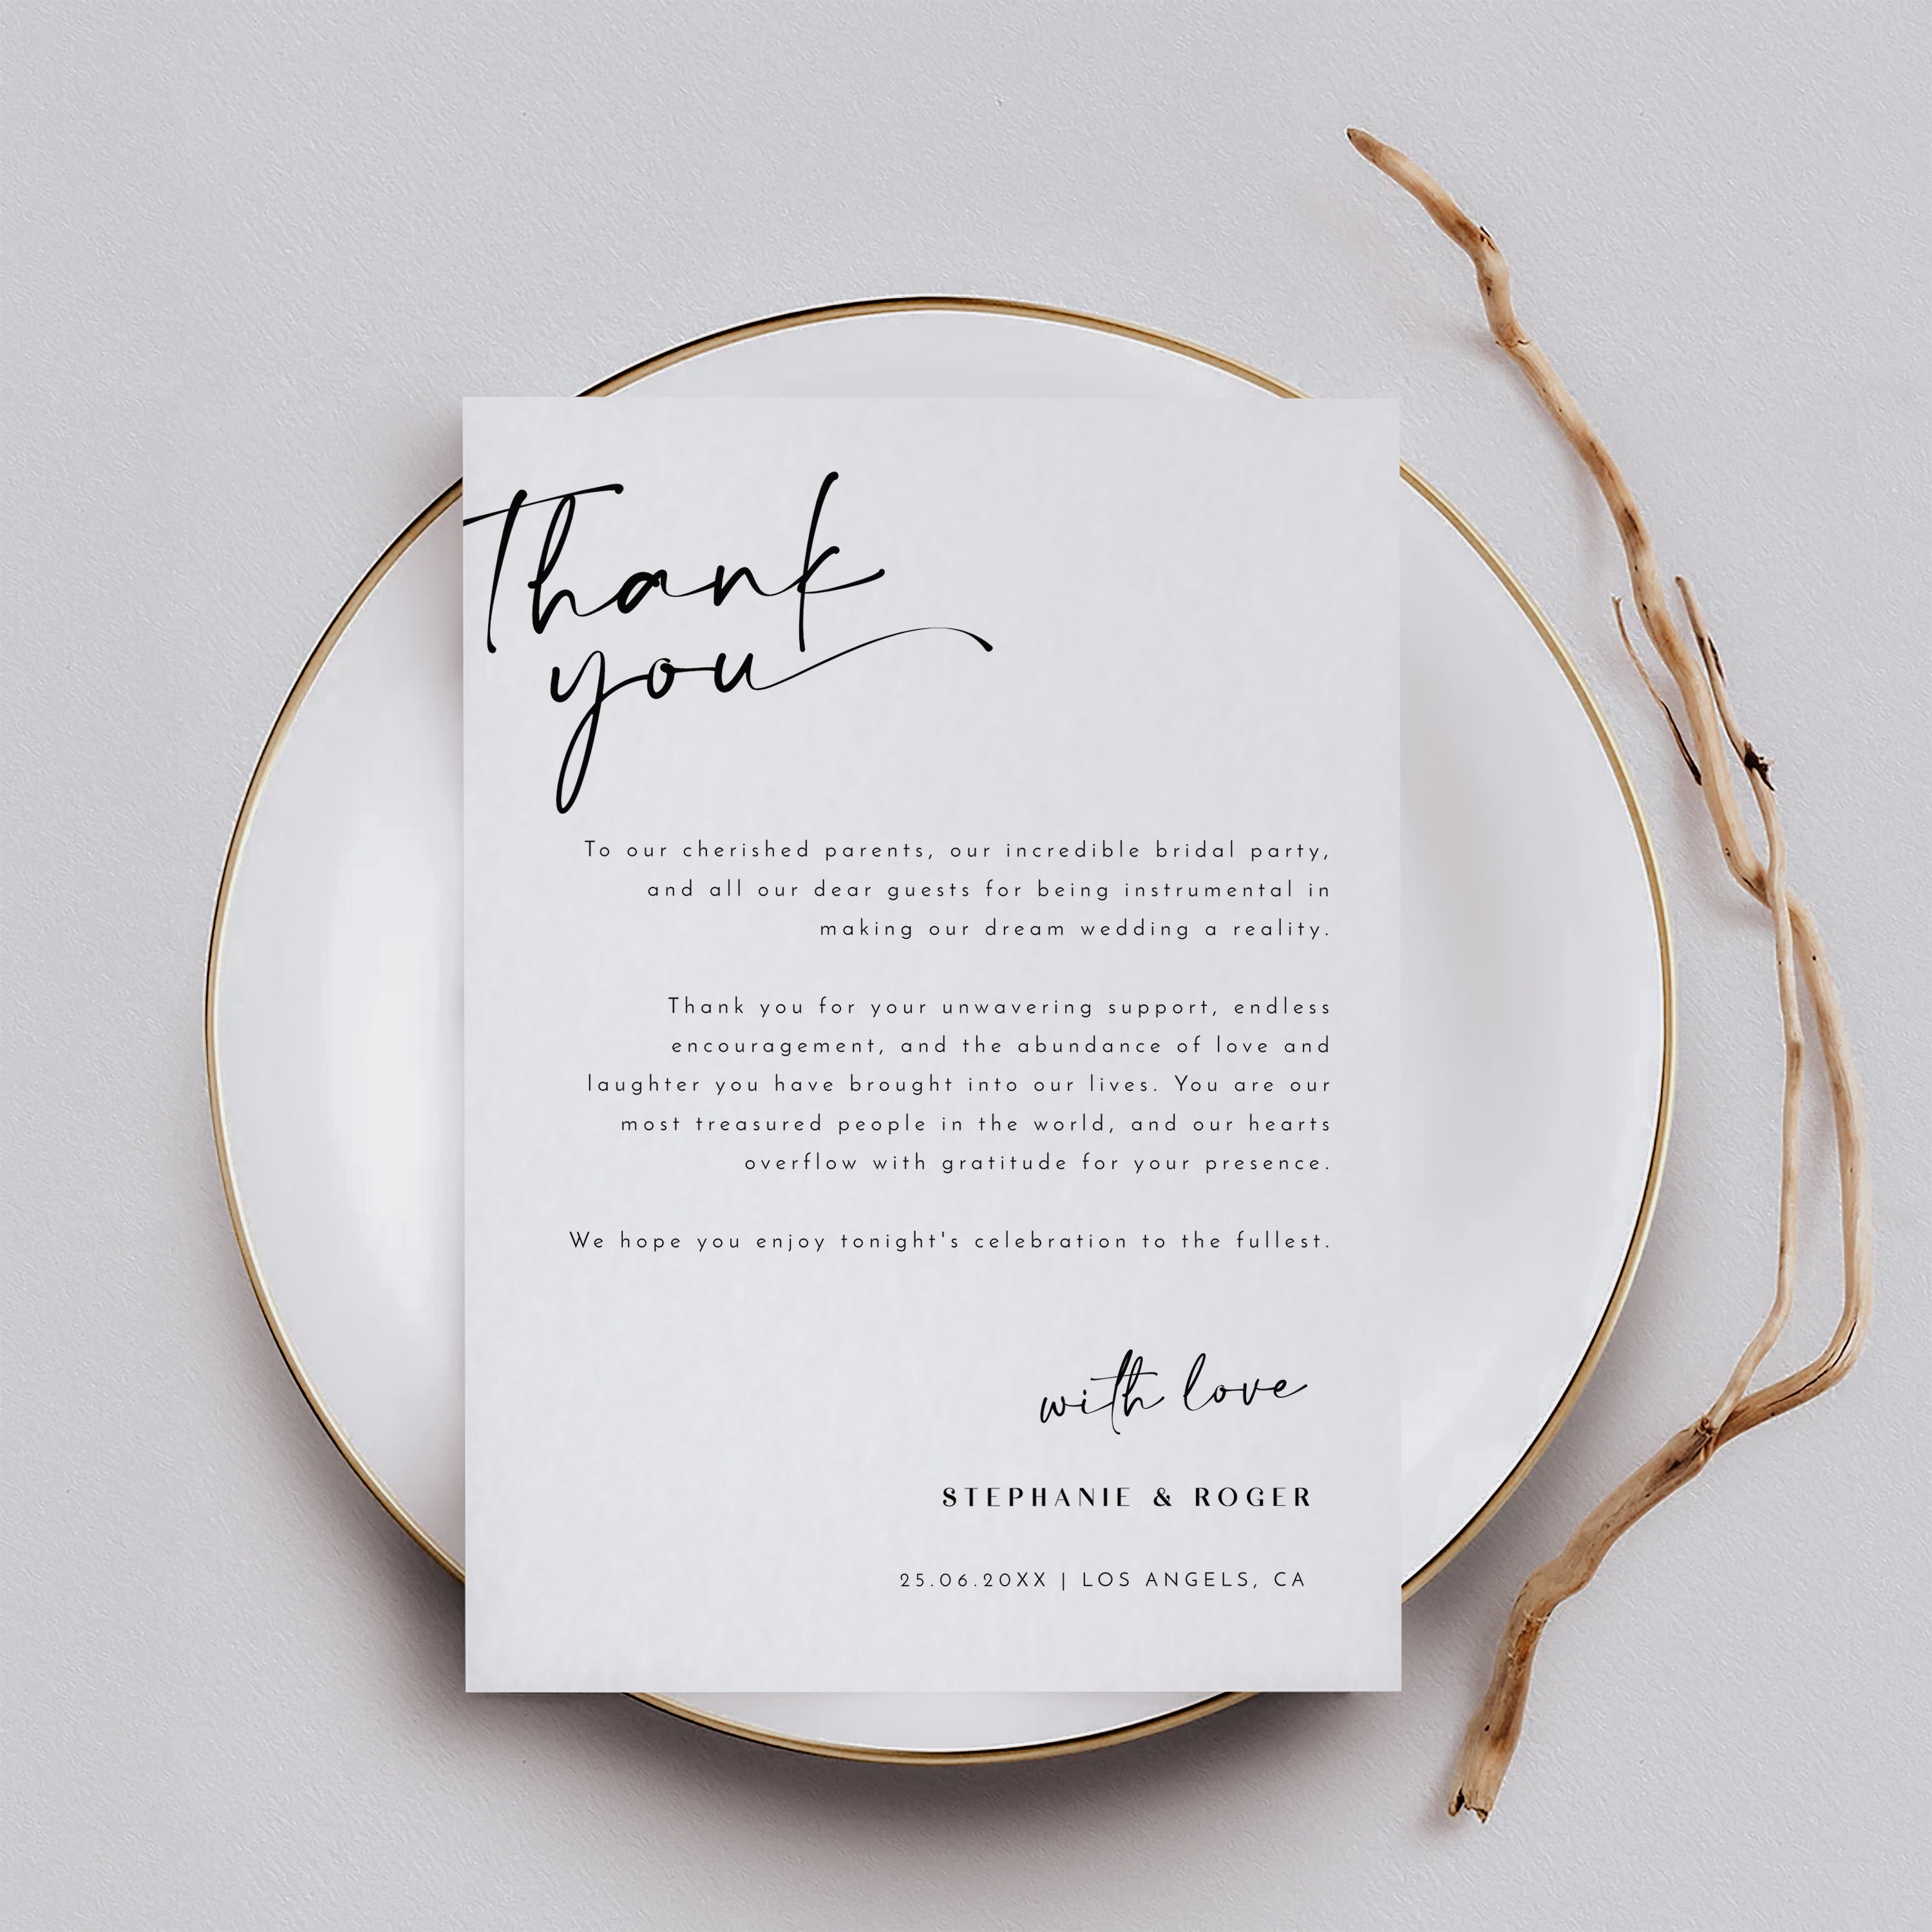 Thank
you
To our cherished parents, our incredible bridal party,
and all our dear guests for being instrumental in
making our dream wedding a reality.
Thank you for your unwavering support, endless
encouragement, and the abundance of love and
laughter you have brought into our lives. You are our
most treasured people in the world, and our hearts
overflow with gratitude for your presence.
We hope you enjoy tonight's celebration to the fullest.
with love
STEPHANIE & ROGER
25.06.20XX | LOS ANGELS, CA